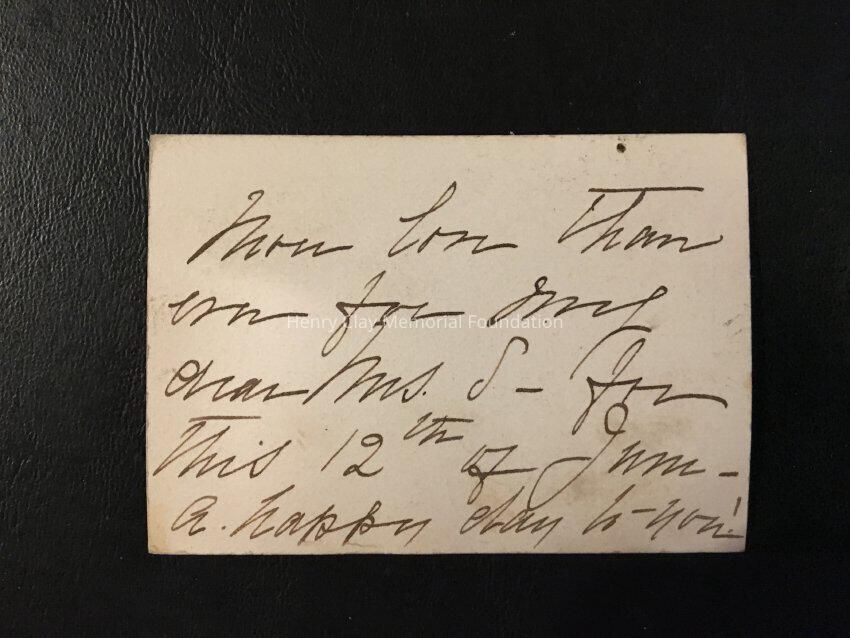 More love than
ever for my
Henry Clay Memorial Foundation
dear Mrs. S - for
this 12th of June -
a happy day to you!